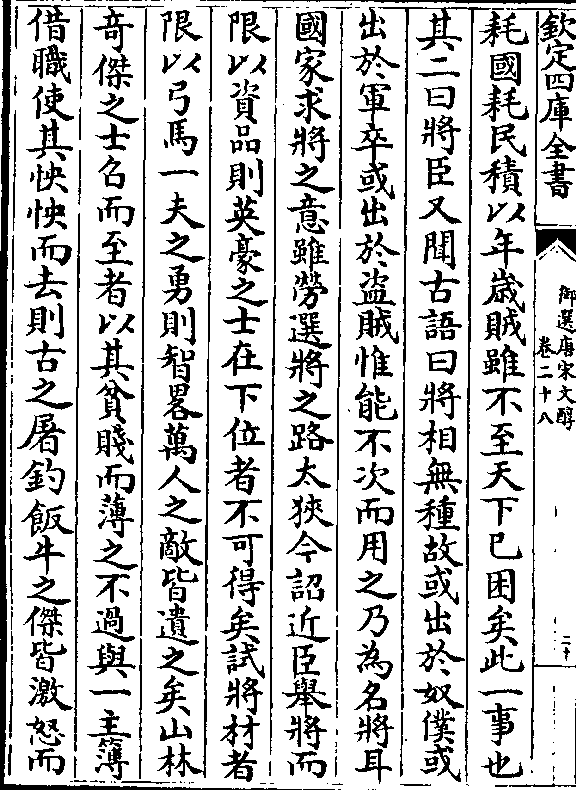 欽定四庫全書
御選唐宋文醇
卷二十八
二十
耗國耗民積以年歲賊雖不至天下已困矣此一事也
其二曰將臣又聞古語曰將相無種故或出於奴僕或
出於軍卒或出於盜賊惟能不次而用之乃為名將耳
國家求將之意雖勞選將之路太狹今詔近臣舉將而
限以資品則英豪之士在下位者不可得矣試將材者
限以弓馬一夫之勇則智畧萬人之敵皆遺之矣山林
奇傑之士召而至者以其貧賤而薄之不過與一主簿
借職使其怏怏而去則古之屠釣飯牛之傑皆激怒而